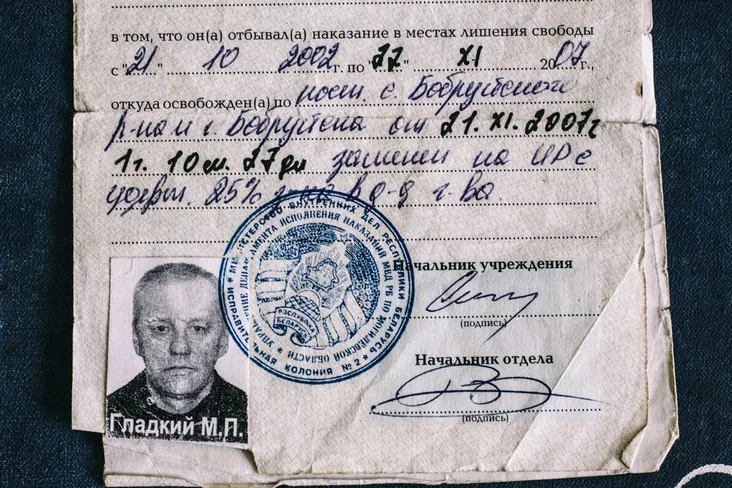 в том, что он(а) отбывал(а) наказание в местах лишения свободы
с "21" 10 2002 г. по "27" XI 2007 г.,
откуда освобожден(а) по пост. с. Бобруйского
р-на и г. Бобруйска от 21. XI. 2007г
1г. 10м. 27дн заменен на ИР с
удерж. 25% в д-д г-ва.
МИНИСТЕРСТВО ВНУТРЕННИХ ДЕЛ РЕСПУБЛИКИ БЕЛАРУСЬ
УПРАВЛЕНИЕ ДЕПАРТАМЕНТА ИСПОЛНЕНИЯ НАКАЗАНИЙ МВД РБ ПО МОГИЛЕВСКОЙ ОБЛАСТИ
ИСПРАВИТЕЛЬНАЯ КОЛОНИЯ № 2
РЭСПУБЛІКА
БЕЛАРУСЬ
Начальник учреждения
(подпись)
Начальник отдела
(подпись)
Гладкий М.П.